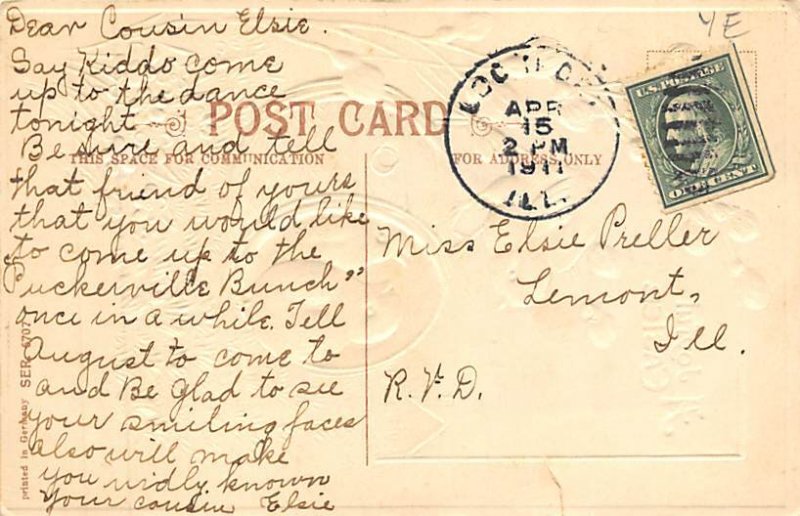 YE
Dear Cousin Elsie.
Say Kiddo come
up to the dance
tonight
POST CARD
Be sure and tell
THIS SPACE FOR COMMUNICATION
FOR ADDRESS ONLY
that friend of yours
that you would like
to come up to the
"Puckerville Bunch"
once in a while. Tell
August to come to
and Be Glad to see
your smiling faces
also will make
you widly known
Your cousin Elsie
printed in Germany SER. 6707
LOCKPORT
APR
15
2 PM
1911
ILL.
U.S. POSTAGE
ONE CENT
Miss Elsie Preller
Lemont,
Ill.
R.F.D.